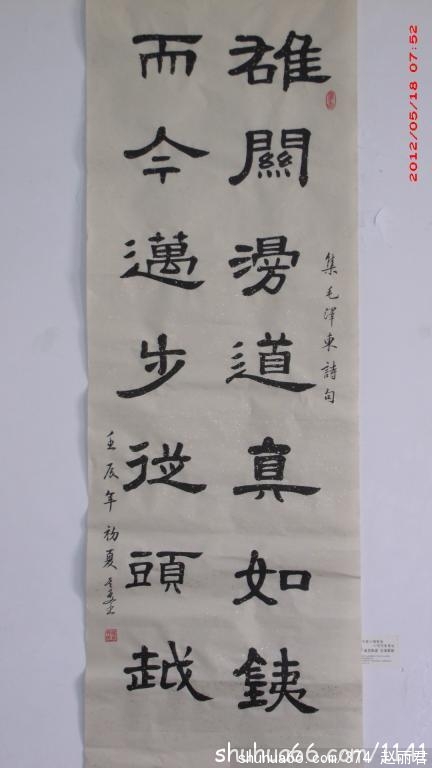 雄關漫道真如銕
集毛澤東詩句
而今邁步從頭越
壬辰年初夏
2012/05/18 07:52
shuhua66.com/1141
shuhua60.com/374 赵丽君